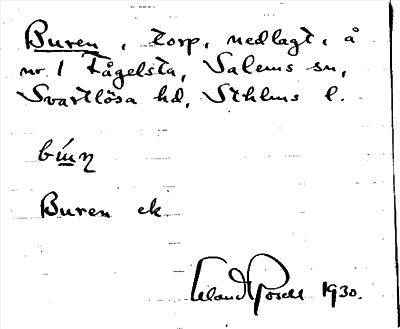 Buren, torp, nedlagt, å
nr 1 Fågelsta, Salems sn,
Svartlösa hd, Sthlms l.
Buren ek
1930.